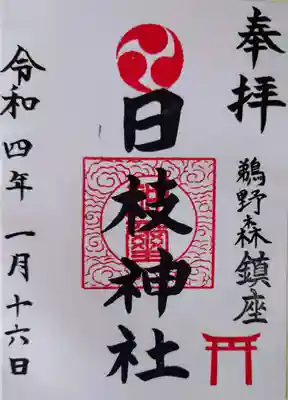 奉拝
鵜野森鎮座
日枝神社
令和四年一月十六日